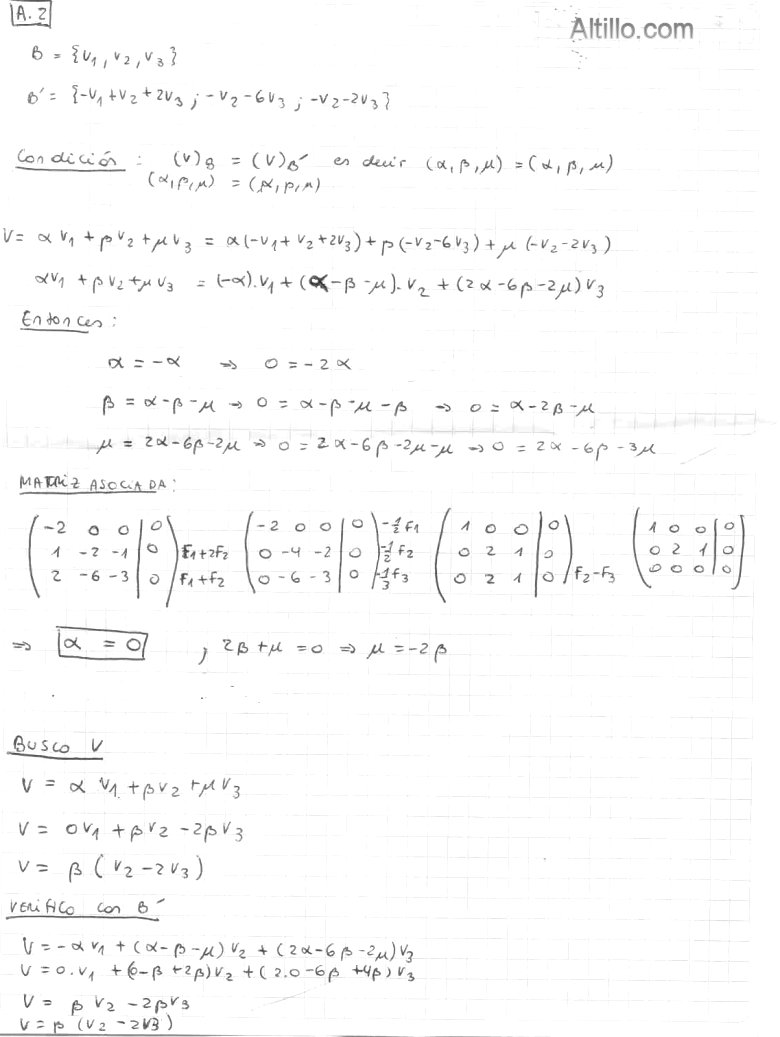 A.2
Altillo.com
B = {v1, v2, v3}
B' = {-v1+v2+2v3 ; -v2-6v3 ; -v2-2v3}
Condición : (v)B = (v)B' es decir (α,β,μ) = (α,β,μ)
(α,β,μ) = (α,β,μ)
V = αv1 + βv2 + μv3 = α(-v1+v2+2v3) + β(-v2-6v3) + μ(-v2-2v3)
αv1 + βv2 + μv3 = (-α).v1 + (α-β-μ).v2 + (2α-6β-2μ)v3
Entonces :
α = -α ⇒ 0 = -2α
β = α-β-μ → 0 = α-β-μ-β ⇒ 0 = α-2β-μ
μ = 2α-6β-2μ ⇒ 0 = 2α-6β-2μ-μ ⇒ 0 = 2α-6β-3μ
MATRIZ ASOCIADA :
-2 0 0 | 0 -2 0 0 | 0 -1/2 F1 1 0 0 | 0 1 0 0 | 0
1 -2 -1 | 0 F1+2F2 0 -4 -2 | 0 -1/2 F2 0 2 1 | 0 0 2 1 | 0
2 -6 -3 | 0 F1+F2 0 -6 -3 | 0 -1/3 F3 0 2 1 | 0 F2-F3 0 0 0 | 0
⇒ α = 0 , 2β+μ = 0 ⇒ μ = -2β
BUSCO V
V = αv1 + βv2 + μv3
V = 0v1 + βv2 - 2βv3
V = β(v2-2v3)
VERIFICO con B'
V = -αv1 + (α-β-μ)v2 + (2α-6β-2μ)v3
V = 0.v1 + (0-β+2β)v2 + (2.0-6β+4β)v3
V = βv2 - 2βv3
V = β(v2-2v3)